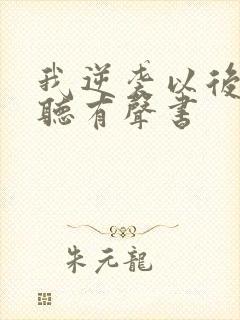 我逆袭以後
聽有聲書
朱元龍